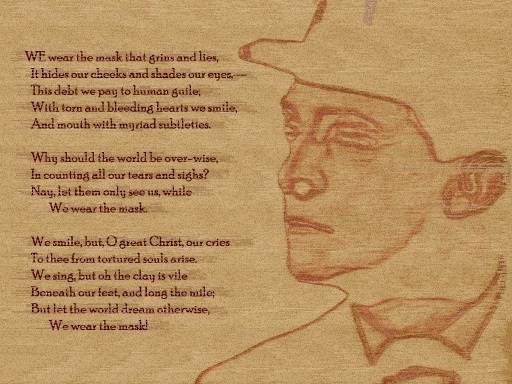 WE wear the mask that grins and lies,
It hides our cheeks and shades our eyes,—
This debt we pay to human guile;
With torn and bleeding hearts we smile,
And mouth with myriad subtleties.
Why should the world be over-wise,
In counting all our tears and sighs?
Nay, let them only see us, while
We wear the mask.
We smile, but, O great Christ, our cries
To thee from tortured souls arise.
We sing, but oh the clay is vile
Beneath our feet, and long the mile;
But let the world dream otherwise,
We wear the mask!